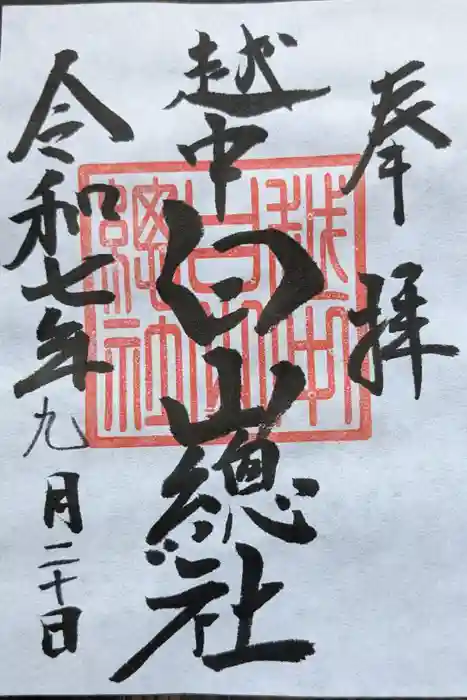 奉拝
越中
白山總社
越中白山總社
令和七年九月二十日